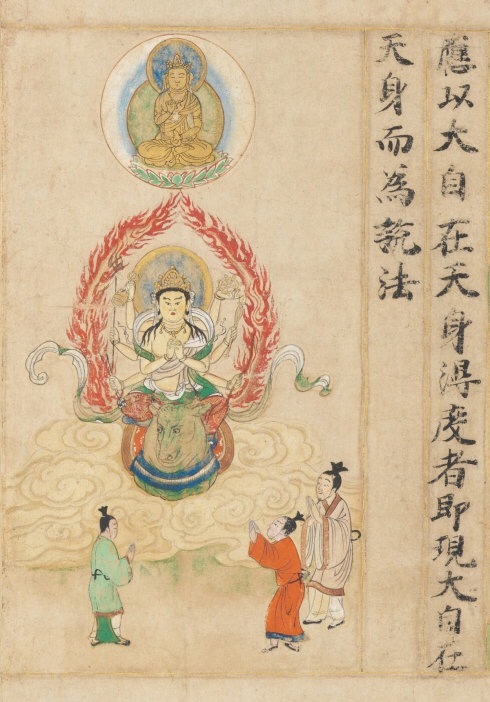 應以大自在天身得度者即現大自在
天身而為說法